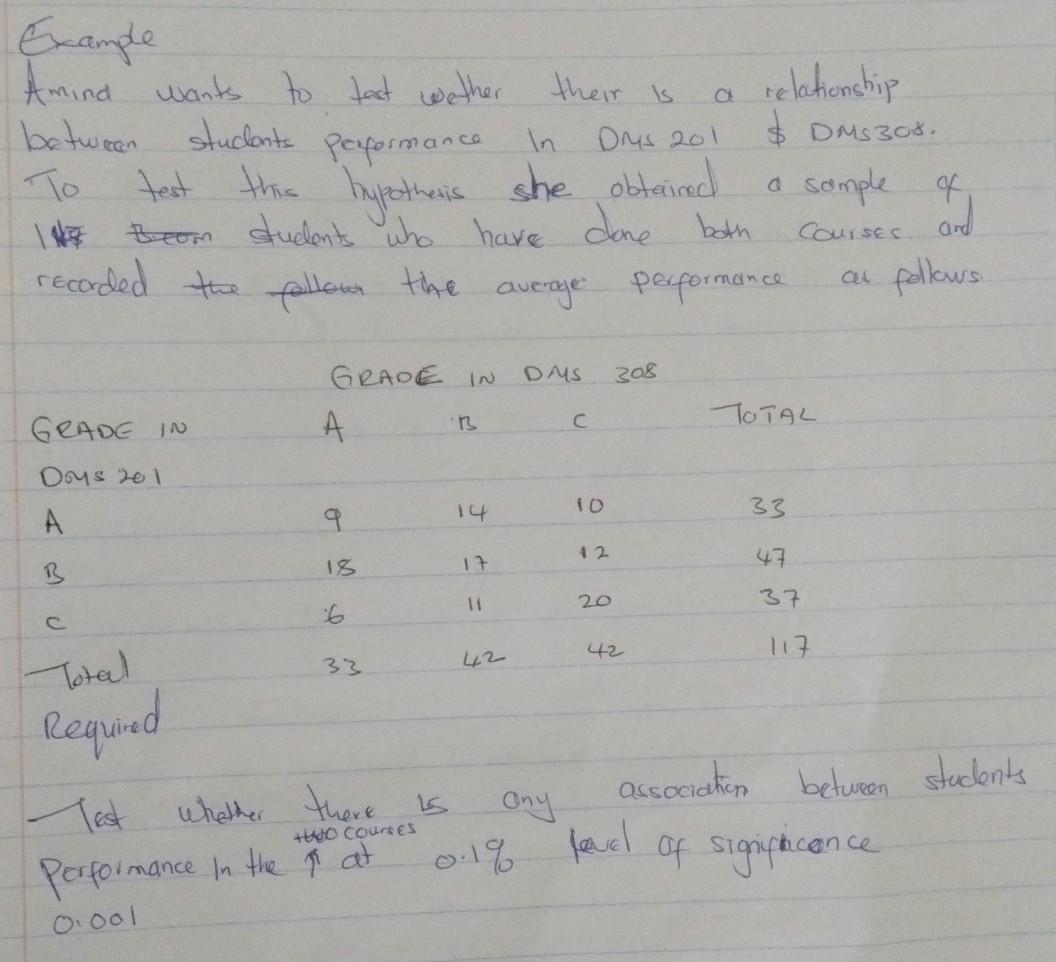 Example
Amind wants to test wether their is a relationship
between students performance In DMS 201 $ DMS308.
To test this hypothesis she obtained a sample of
students who have done both courses and
recorded the follow the average performance as follows.
GRADE IN DMS 308
GRADE IN A B C TOTAL
DMS 201
A 9 14 10 33
B 18 17 12 47
C 6 11 20 37
Total 33 42 42 117
Required
Test whether there is any association between students
two courses
Performance In the ↑ at 0.1% level of significance
0.001